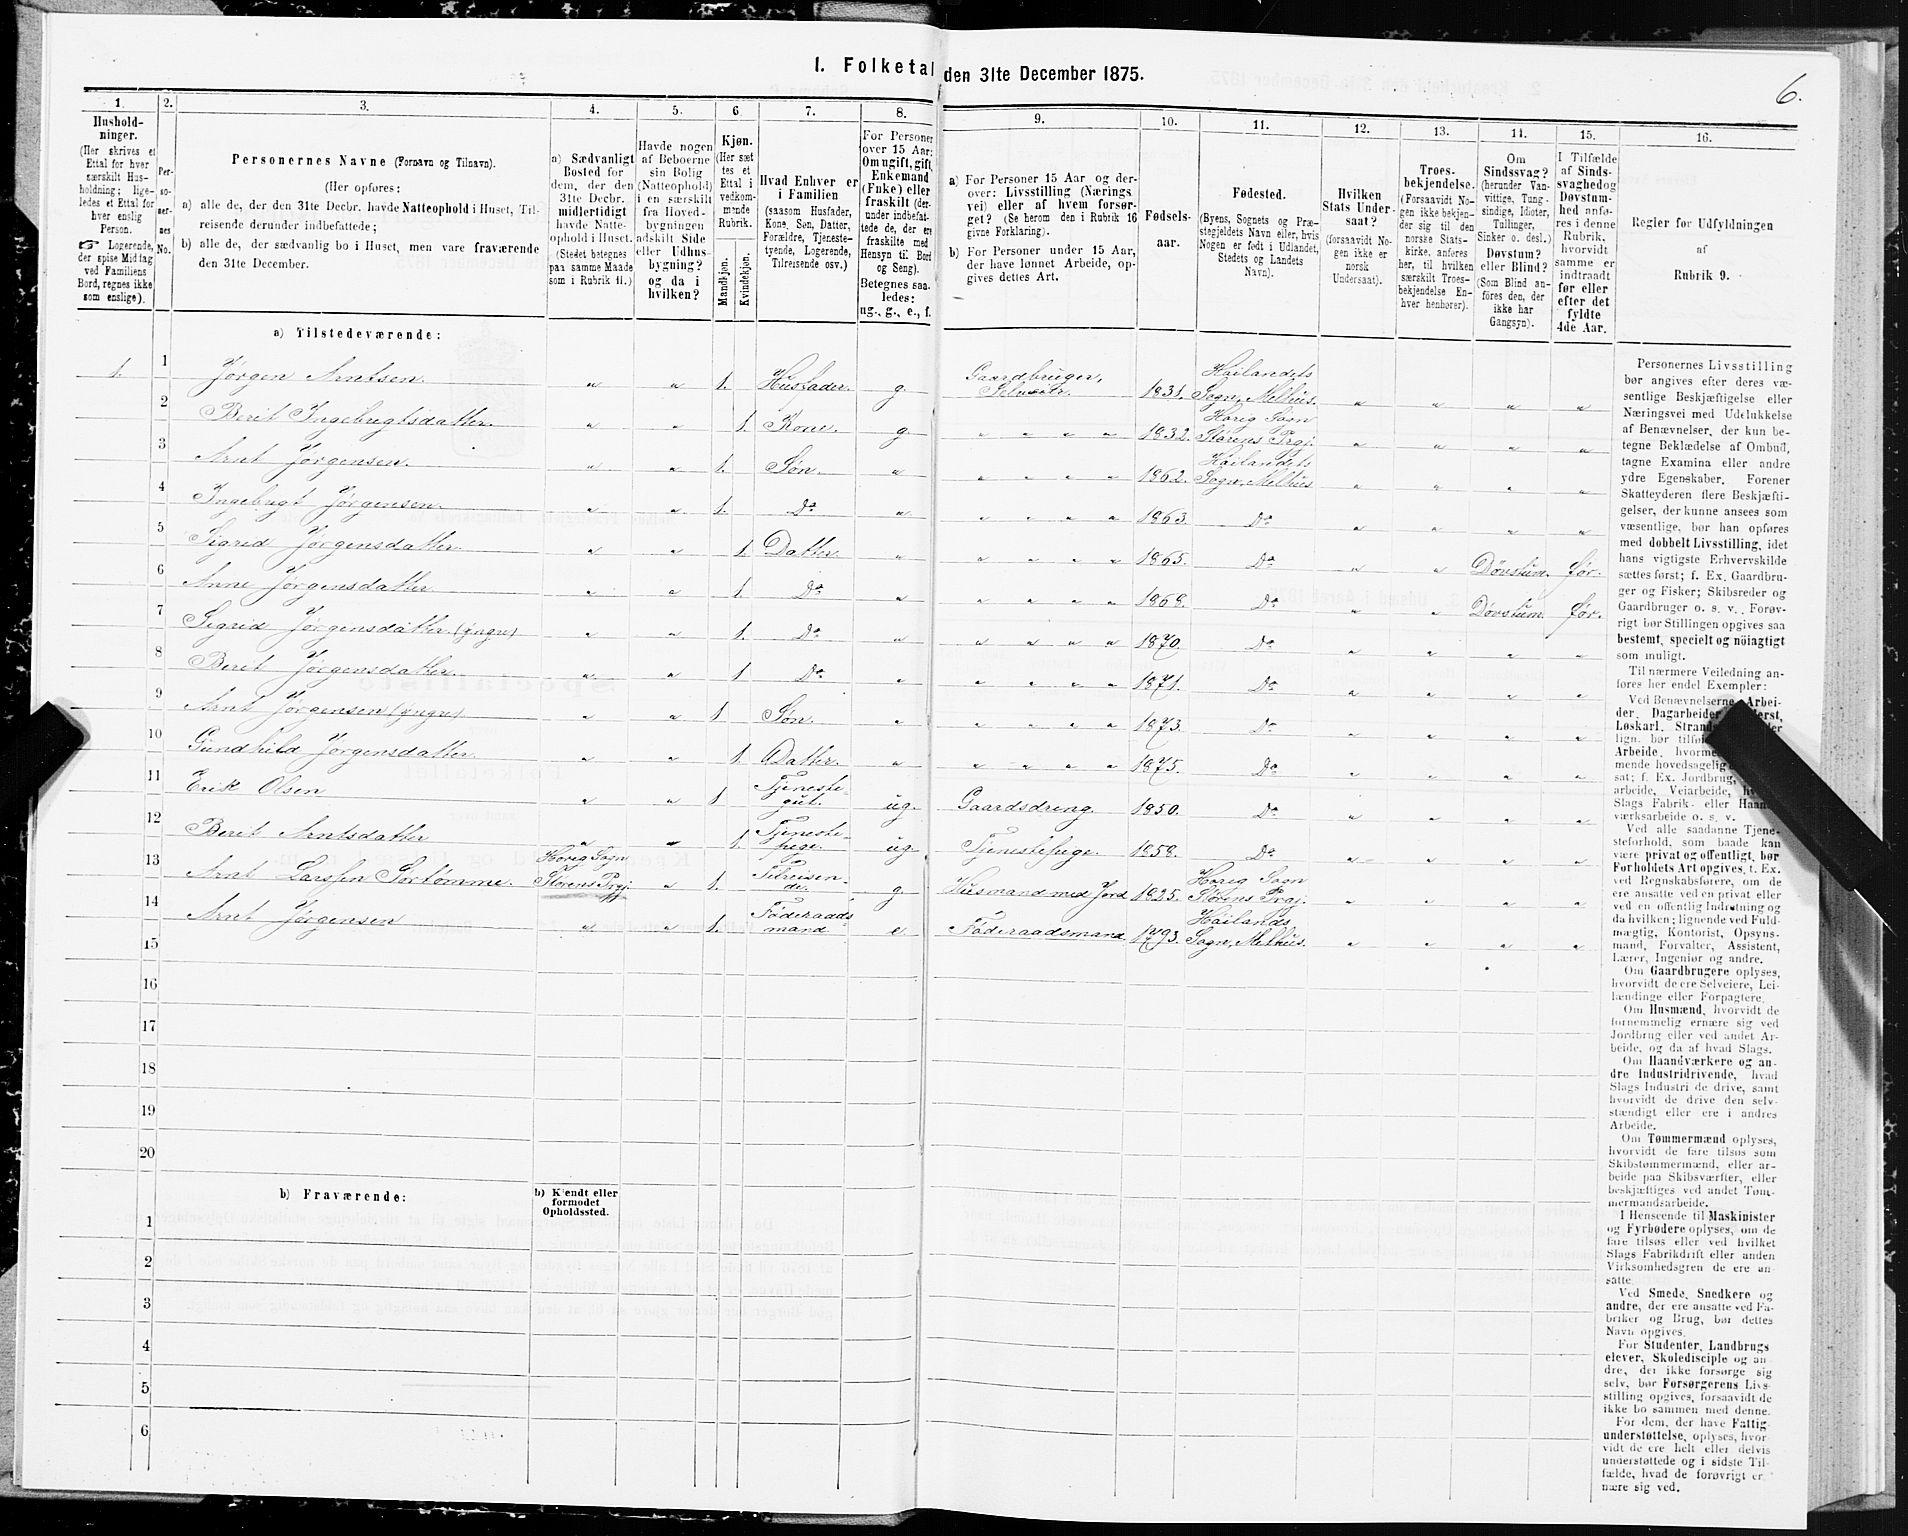 I. Folketal den 31te December 1875.
6.
1. 2. 3. 4. 5. 6 7. 8. 9. 10. 11. 12. 13. 14. 15. 16.
Hushold-
ninger.
(Her skrives et
Ettal for hver
særskilt Hus-
holdning; lige-
ledes et Ettal for
hver enslig
Person.
☞ Logerende,
der spise Middag
ved Familiens
Bord, regnes ikke
som enslige).
Per-
so-
ner-
nes
No.
Personernes Navne (Fornavn og Tilnavn).
(Her opføres:
a) alle de, der den 31te Decbr. havde Natteophold i Huset, Til-
reisende derunder indbefattede;
b) alle de, der sædvanlig bo i Huset, men vare fraværende
den 31te December.
a) Sædvanligt
Bosted for
dem, der den
31te Decbr.
midlertidigt
havde Natte-
ophold i Huset.
(Stedet betegnes
paa samme Maade
som i Rubrik 11.)
Havde nogen
af Beboerne
sin Bolig
(Natteophold)
i en særskilt
fra Hoved-
bygningen
adskilt Side
eller Udhus-
bygning?
og da i
hvilken?
Kjøn.
(Her sæt
tes et
Ettal i
vedkom-
mende
Rubrik.
Mandkjøn.
Kvindekjøn.
Hvad Enhver er
i Familien
(saasom Husfader,
Kone, Søn, Datter,
Forældre, Tjeneste-
tyende, Logerende,
Tilreisende osv.)
For Personer
over 15 Aar:
Om ugift, gift,
Enkemand
(Enke) eller
fraskilt (der-
under indbefat-
tede de, der ere
fraskilte med
Hensyn til Bord
og Seng).
Betegnes saa-
ledes:
ug., g., e., f.
a) For Personer 15 Aar og der-
over: Livsstilling (Nærings
vei) eller af hvem forsør-
get? (Se herom den i Rubrik 16
givne Forklaring).
b) For Personer under 15 Aar,
der have lønnet Arbeide, op-
gives dettes Art.
Fødsels-
aar.
Fødested.
(Byens, Sognets og Præ-
stegjeldets Navn eller, hvis
Nogen er født i Udlandet,
Stedets og Landets
Navn).
Hvilken
Stats Under-
saat?
(forsaavidt No-
gen ikke er
norsk
Undersaat).
Troes-
bekjendelse.
(Forsaavidt No-
gen ikke bekjen-
der sig til den
norske Stats-
kirke, anføres
her, til hvilken
særskilt Troes-
bekjendelse En-
hver henhører).
Om
Sindssvag?
(herunder Van-
vittige, Tung-
sindige, Idioter,
Tullinger,
Sinker o. desl.)
Døvstum?
eller Blind?
(Som Blind an-
føres den, der
ikke har
Gangsyn).
I Tilfælde
af Sinds-
svaghedog
Døvstum-
hed anfø-
res i denne
Rubrik,
hvorvidt
samme er
indtraadt
før eller
efter det
fyldte
4de Aar.
Regler for Udfyldningen
af
Rubrik 9.
a) Tilstedeværende:
1. 1 Jørgen Arntsen. „ „ 1. Husfader. g. Gaardbruger, Selveier. 1831. Hailandets Sogn, Melhus. „ „ „ „
2 Berit Ingebrigtsdatter. „ „ 1. Kone. g. „ „ „ „ 1832. Horig Sogn Størens Prgj. „ „ „ „
3 Arnt Jørgensen. „ „ 1. Søn. „ „ „ „ „ 1862. Hailandets Sogn, Melhus. „ „ „ „
4 Ingebrigt Jørgensen. „ „ 1. Do „ „ „ „ „ 1863. Do „ „ „ „
5 Sigrid Jørgensdatter. „ „ 1. Datter. „ „ „ „ „ 1865. Do „ „ Døvstum. før.
6 Anne Jørgensdatter. „ „ 1. Do „ „ „ „ „ 1868. Do „ „ Døvstum. før.
7 Sigrid Jørgensdatter (yngre) „ „ 1. Do „ „ „ „ „ 1870. Do „ „ „ „
8 Berit Jørgensdatter. „ „ 1 Do „ „ „ „ „ 1871. Do „ „ „ „
9 Arnt Jørgensen (yngre) „ „ 1 Søn. „ „ „ „ „ 1873. Do „ „ „ „
10 Gundhild Jørgensdatter. „ „ 1. Datter. „ „ „ „ „ 1875. Do „ „ „ „
11 Erik Olsen „ „ 1 Tjeneste-gut. ug. Gaardsdreng. 1850. Do „ „ „ „
12 Berit Arntsdatter „ „ 1. Tjeneste-pige. ug. Tjenestepige. 1858. Do „ „ „ „
13 Arnt Larssen Sørtømme. Horig Sogn Størens Prgj. „ 1. Tilreisen-de. g Husmand med Jord 1825. Horig Sogn Størens Prgj. „ „ „ „
14 Arnt Jørgensen „ „ 1. Føderaads mand e. Føderaadsmand 1793. Hailands Sogn, Melhus. „ „ „ „
15
16
17
18
19
20
b) Fraværende:
b) Kjendt eller
formodet
Opholdssted.
1
2
3
4
5
6
Personernes Livsstilling
bør angives efter deres væ-
sentlige Beskjæftigelse eller
Næringsvei med Udelukkelse
af Benævnelser, der kun be-
tegne Beklædelse af Ombud,
tagne Examina eller andre
ydre Egenskaber. Forener
Skatteyderen flere Beskjæfti-
gelser, der kunne ansees som
væsentlige, bør han opføres
med dobbelt Livsstilling, idet
hans vigtigste Erhvervskilde
sættes først; f. Ex. Gaardbru-
ger og Fisker; Skibsreder og
Gaardbruger o. s. v. Forøv-
rigt bør Stillingen opgives saa
bestemt, specielt og nöiagtigt
som muligt.
Til nærmere Veiledning an-
føres her endel Exempler:
Ved Benævnelserne Arbei-
der, Dagarbeider
Løskarl, Strand
lign. bør tilføi
Arbeide, hvorme
mende hovedsagelig
sat; f. Ex. Jordbrug,
arbeide, Veiarbeide,
Slags Fabrik- eller Haand
værksarbeide o. s. v.
Ved alle saadanne Tjene-
steforhold, som baade kan
være privat og offentligt, bør
Forholdets Art opgives, t. Ex.
ved Regnskabsførere, om de
ere ansatte ved en privat eller
ved en offentlig Indretning og
da hvilken; lignende ved Fuld-
mægtig, Kontorist, Opsyns-
mand, Forvalter, Assistent,
Lærer, Ingeniør og andre.
Om Gaardbrugere oplyses,
hvorvidt de ere Selveiere, Lei-
lændinge eller Forpagtere.
Om Husmænd, hvorvidt de
fornemmelig ernære sig ved
Jordbrug eller ved andet Ar-
beide, og da af hvad Slags.
Om Haandværkere og an-
dre Industridrivende, hvad
Slags Industri de drive, samt
hvorvidt de drive den selv-
stændigt eller ere i andres
Arbeide.
Om Tømmermænd oplyses,
hvorvidt de fare tilsøs som
Skibstømmermænd, eller ar-
beide paa Skibsværfter, eller
beskjæftiges ved andet Tøm-
mermandsarbeide.
I Henseende til Maskinister
og Fyrbødere oplyses, om de
fare tilsøs eller ved hvilket
Slags Fabrikdrift eller anden
Virksomhedsgren de ere an-
satte.
Ved Smede, Snedkere og
andre, der ere ansatte ved Fa-
briker og Brug, bør dettes
Navn opgives.
For Studenter, Landbrugs
elever, Skoledisciple og an
dre, der ikke forsørge sig
selv, bør Forsørgerens Livs-
stilling opgives, forsaavidt de
ikke bo sammen med denne.
For dem, der have Fattig-
understøttelse, oplyses, hvor-
vidt de ere helt eller delvis
understøttede og i sidste Til-
fælde, hvad de forøvrigt er-
nære sig ved.